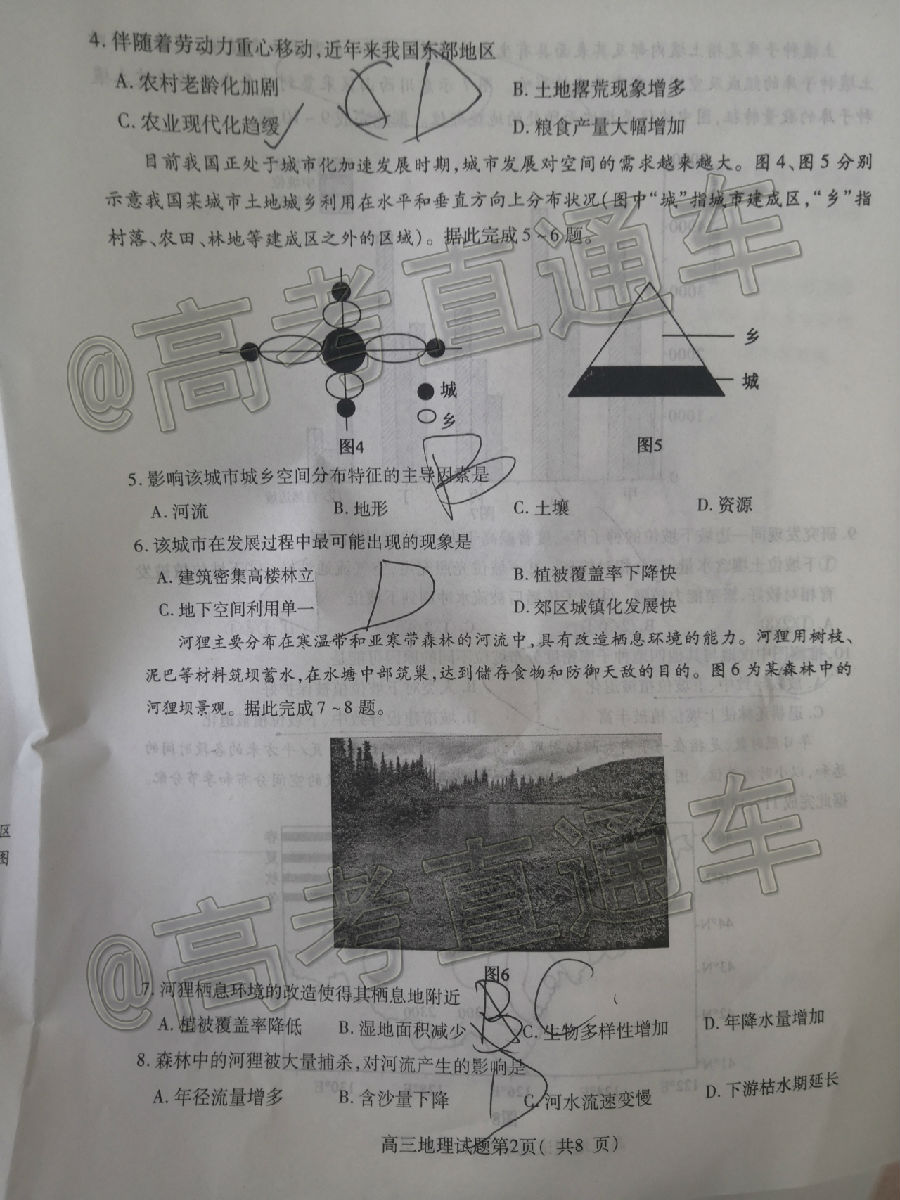 4. 伴随着劳动力重心移动,近年来我国东部地区
A. 农村老龄化加剧
B. 土地撂荒现象增多
C. 农业现代化趋缓
D. 粮食产量大幅增加
D
目前我国正处于城市化加速发展时期,城市发展对空间的需求越来越大。图4、图5分别
示意我国某城市土地城乡利用在水平和垂直方向上分布状况(图中“城”指城市建成区,“乡”指
村落、农田、林地等建成区之外的区域)。据此完成5~6题。
城
乡
图4
乡
城
图5
@高考直通车
5. 影响该城市城乡空间分布特征的主导因素是
B
A. 河流 B. 地形 C. 土壤 D. 资源
6. 该城市在发展过程中最可能出现的现象是
A. 建筑密集高楼林立 B. 植被覆盖率下降快
C. 地下空间利用单一 D. 郊区城镇化发展快
D
河狸主要分布在寒温带和亚寒带森林的河流中,具有改造栖息环境的能力。河狸用树枝、
泥巴等材料筑坝蓄水,在水塘中部筑巢,达到储存食物和防御天敌的目的。图6为某森林中的
河狸坝景观。据此完成7~8题。
@高考直通车
图6
7. 河狸栖息环境的改造使得其栖息地附近
B C
A. 植被覆盖率降低 B. 湿地面积减少 C. 生物多样性增加 D. 年降水量增加
8. 森林中的河狸被大量捕杀,对河流产生的影响是
A. 年径流量增多 B. 含沙量下降 C. 河水流速变慢 D. 下游枯水期延长
D
高三地理试题第2页( 共8 页)
区
图